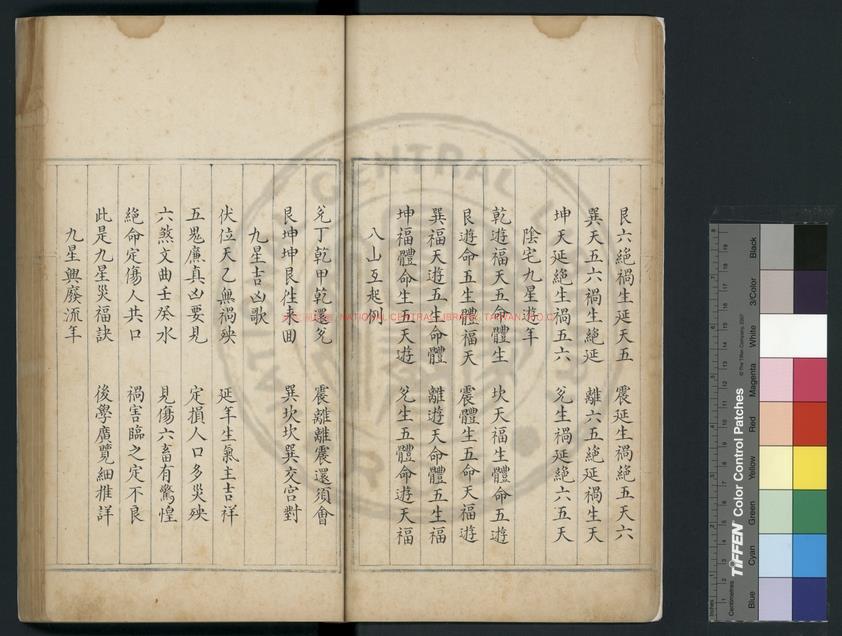 艮六絕禍生延天五　震延生禍絕五天六
巽天五六禍生絕延　離六五絕延禍生天
坤天延絕生禍五六　兊生禍延絕六五天
陰宅九星遊年
乾遊福天五命體生　坎天福生體命五遊
艮遊命五生體福天　震體生五命天福遊
巽福天遊五生命體　離遊天命體五生福
坤福體命生五天遊　兊生五體命遊天福
八山互起例
兊丁乾甲乾還兊　震離離震還須會
艮坤坤艮徃来囬　巽坎坎巽交宫對
九星吉凶歌
伏位天乙無禍殃　延年生氣主吉祥
五鬼廉真凶要見　定損人口多災殃
六煞文曲壬癸水　見傷六畜有驚惶
絕命定傷人共口　禍害臨之定不良
此是九星災福訣　後學廣覽細推詳
九星興廢流年
NATIONAL CENTRAL LIBRARY, TAIWAN
TIFFEN Color Control Patches
© The Tiffen Company, 2007
Centimetres
Inches
Blue
Cyan
Green
Yellow
Red
Magenta
White
3/Color
Black